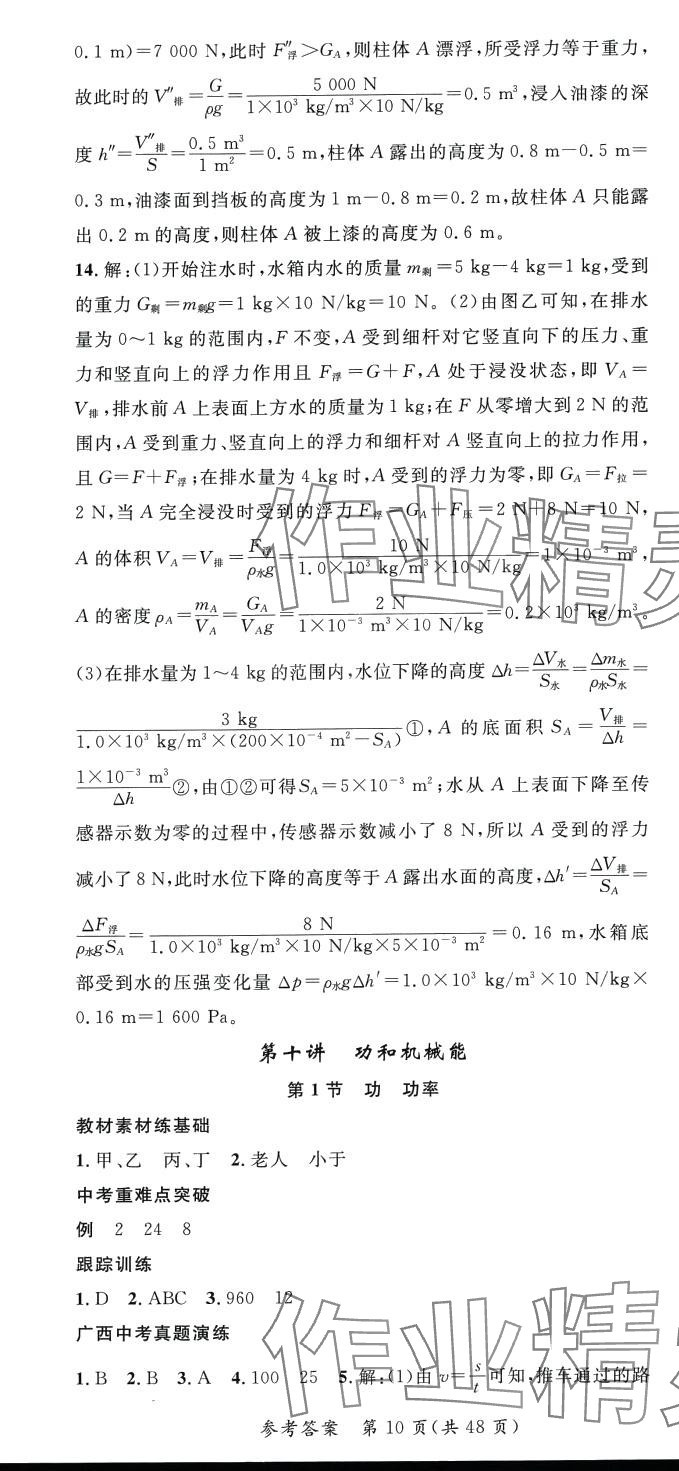 0.1 m)=7 000 N,此时 F″浮>GA,则柱体 A 漂浮,所受浮力等于重力,
故此时的 V″排=G/ρg=5 000 N/(1×10³ kg/m³×10 N/kg)=0.5 m³,浸入油漆的深
度 h″=V″排/S=0.5 m³/1 m²=0.5 m,柱体 A 露出的高度为 0.8 m-0.5 m=
0.3 m,油漆面到挡板的高度为 1 m-0.8 m=0.2 m,故柱体 A 只能露
出 0.2 m 的高度,则柱体 A 被上漆的高度为 0.6 m。
14.解:(1)开始注水时,水箱内水的质量 m剩=5 kg-4 kg=1 kg,受到
的重力 G剩=m剩g=1 kg×10 N/kg=10 N。(2)由图乙可知,在排水
量为 0~1 kg 的范围内,F 不变,A 受到细杆对它竖直向下的压力、重
力和竖直向上的浮力作用且 F浮=G+F,A 处于浸没状态,即 VA=
V排,排水前 A 上表面上方水的质量为 1 kg;在 F 从零增大到 2 N 的范
围内,A 受到重力、竖直向上的浮力和细杆对 A 竖直向上的拉力作用,
且 G=F+F浮;在排水量为 4 kg 时,A 受到的浮力为零,即 GA=F拉=
2 N,当 A 完全浸没时受到的浮力 F浮=GA+F压=2 N+8 N=10 N,
A 的体积 VA=V排=F浮/ρ水g=10 N/(1.0×10³ kg/m³×10 N/kg)=1×10⁻³ m³,
A 的密度 ρA=mA/VA=GA/VAg=2 N/(1×10⁻³ m³×10 N/kg)=0.2×10³ kg/m³。
(3)在排水量为 1~4 kg 的范围内,水位下降的高度 Δh=ΔV水/S水=Δm水/ρ水S水=
3 kg/(1.0×10³ kg/m³×(200×10⁻⁴ m²-SA))①,A 的底面积 SA=V排/Δh=
1×10⁻³ m³/Δh②,由①②可得SA=5×10⁻³ m²;水从 A 上表面下降至传
感器示数为零的过程中,传感器示数减小了 8 N,所以 A 受到的浮力
减小了 8 N,此时水位下降的高度等于 A 露出水面的高度,Δh′=ΔV排/SA=
ΔF浮/ρ水gSA=8 N/(1.0×10³ kg/m³×10 N/kg×5×10⁻³ m²)=0.16 m,水箱底
部受到水的压强变化量 Δp=ρ水gΔh′=1.0×10³ kg/m³×10 N/kg×
0.16 m=1 600 Pa。
第十讲 功和机械能
第 1 节 功 功率
教材素材练基础
1.甲、乙 丙、丁 2.老人 小于
中考重难点突破
例 2 24 8
跟踪训练
1.D 2.ABC 3.960 12
广西中考真题演练
1.B 2.B 3.A 4.100 25 5.解:(1)由 v=s/t 可知,推车通过的路
参考答案 第 10 页(共 48 页)
作业精灵
作业精灵